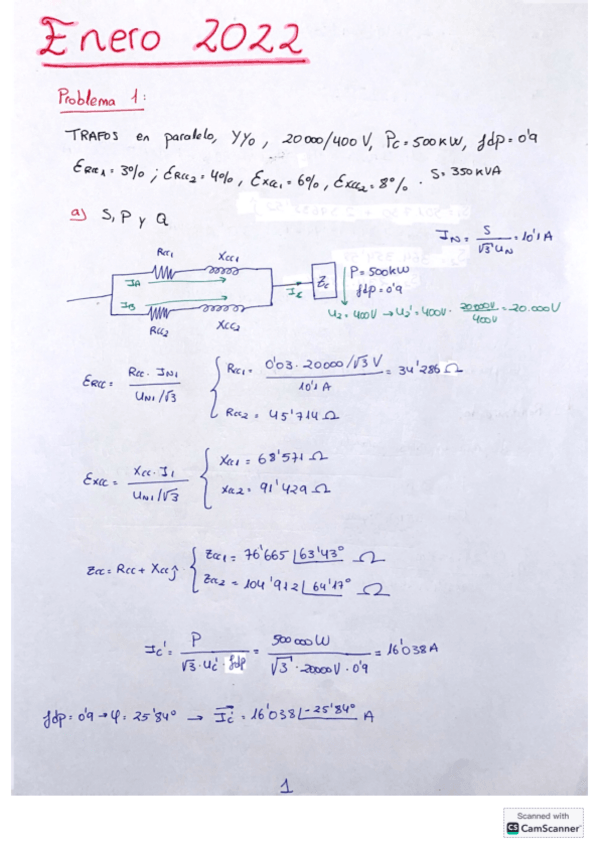 Enero 2022
Problema 1:
TRAFOS en paralelo, YY0, 20000/400 V, Pc = 500 kW, fdp = 0'9
ƐRcc1 = 3%; ƐRcc2 = 4%, ƐXcc1 = 6%, ƐXcc2 = 8%. S = 350 KVA
a) S, P y Q
IN = S / √3 UN = 10'1 A
Rcc1 Xcc1
IA
IB
Rcc2 Xcc2
Ic
Zc
P = 500 kW
fdp = 0'9
U2 = 400V → U2' = 400V · 20000V / 400V = 20.000V
ƐRcc = Rcc · IN1 / UN1/√3
Rcc1 = 0'03 · 20000/√3 V / 10'1 A = 34'286 Ω
Rcc2 = 45'714 Ω
ƐXcc = Xcc · I1 / UN1/√3
Xcc1 = 68'571 Ω
Xcc2 = 91'429 Ω
Zcc = Rcc + Xcc j
Zcc1 = 76'665 |63'43° Ω
Zcc2 = 104'912 |64'17° Ω
Ic' = P / √3 · Uc' · fdp = 500 000 W / √3 · 20000V · 0'9 = 16'038 A
fdp = 0'9 → φ = 25'84° → Ic' = 16'038 |-25'84° A
1
Scanned with
CS CamScanner